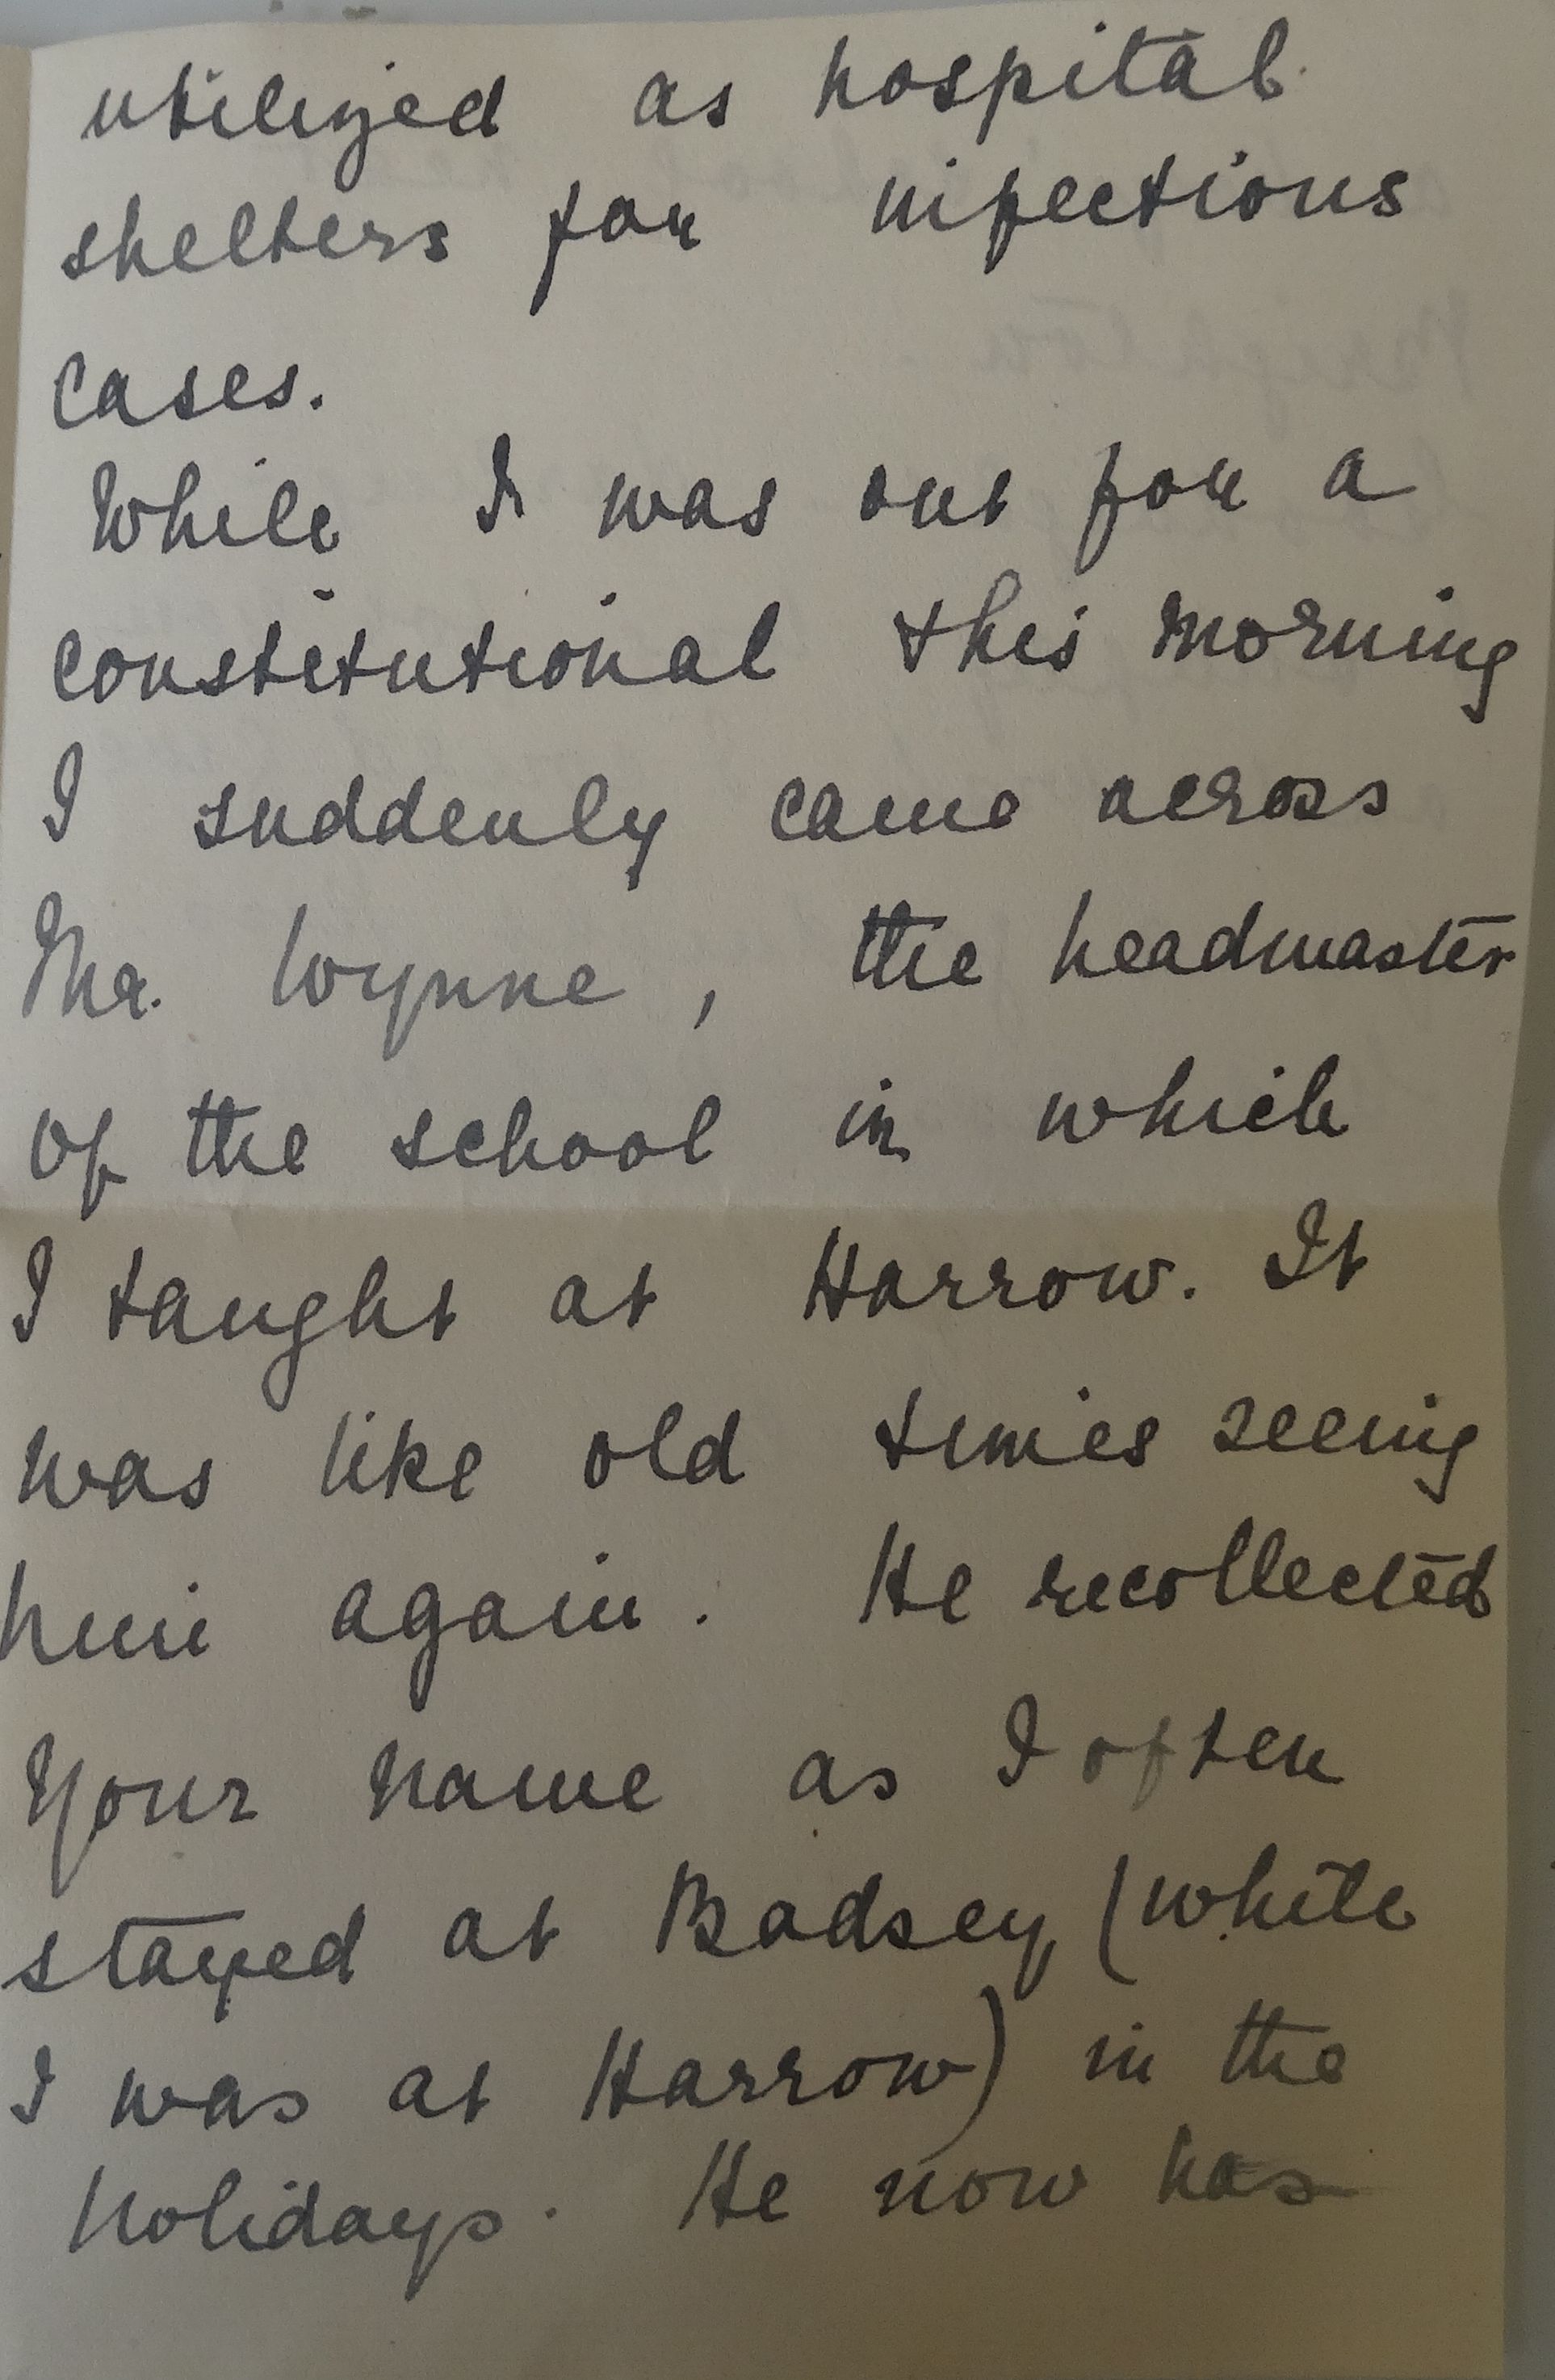 utilized as hospital
shelters for infectious
cases.
While I was out for a
constitutional this morning
I suddenly came across
Mr. Wynne, the headmaster
of the school in which
I taught at Harrow. It
was like old times seeing
him again. He recollected
your name as I often
stayed at Badsey (while
I was at Harrow) in the
holidays. He now has